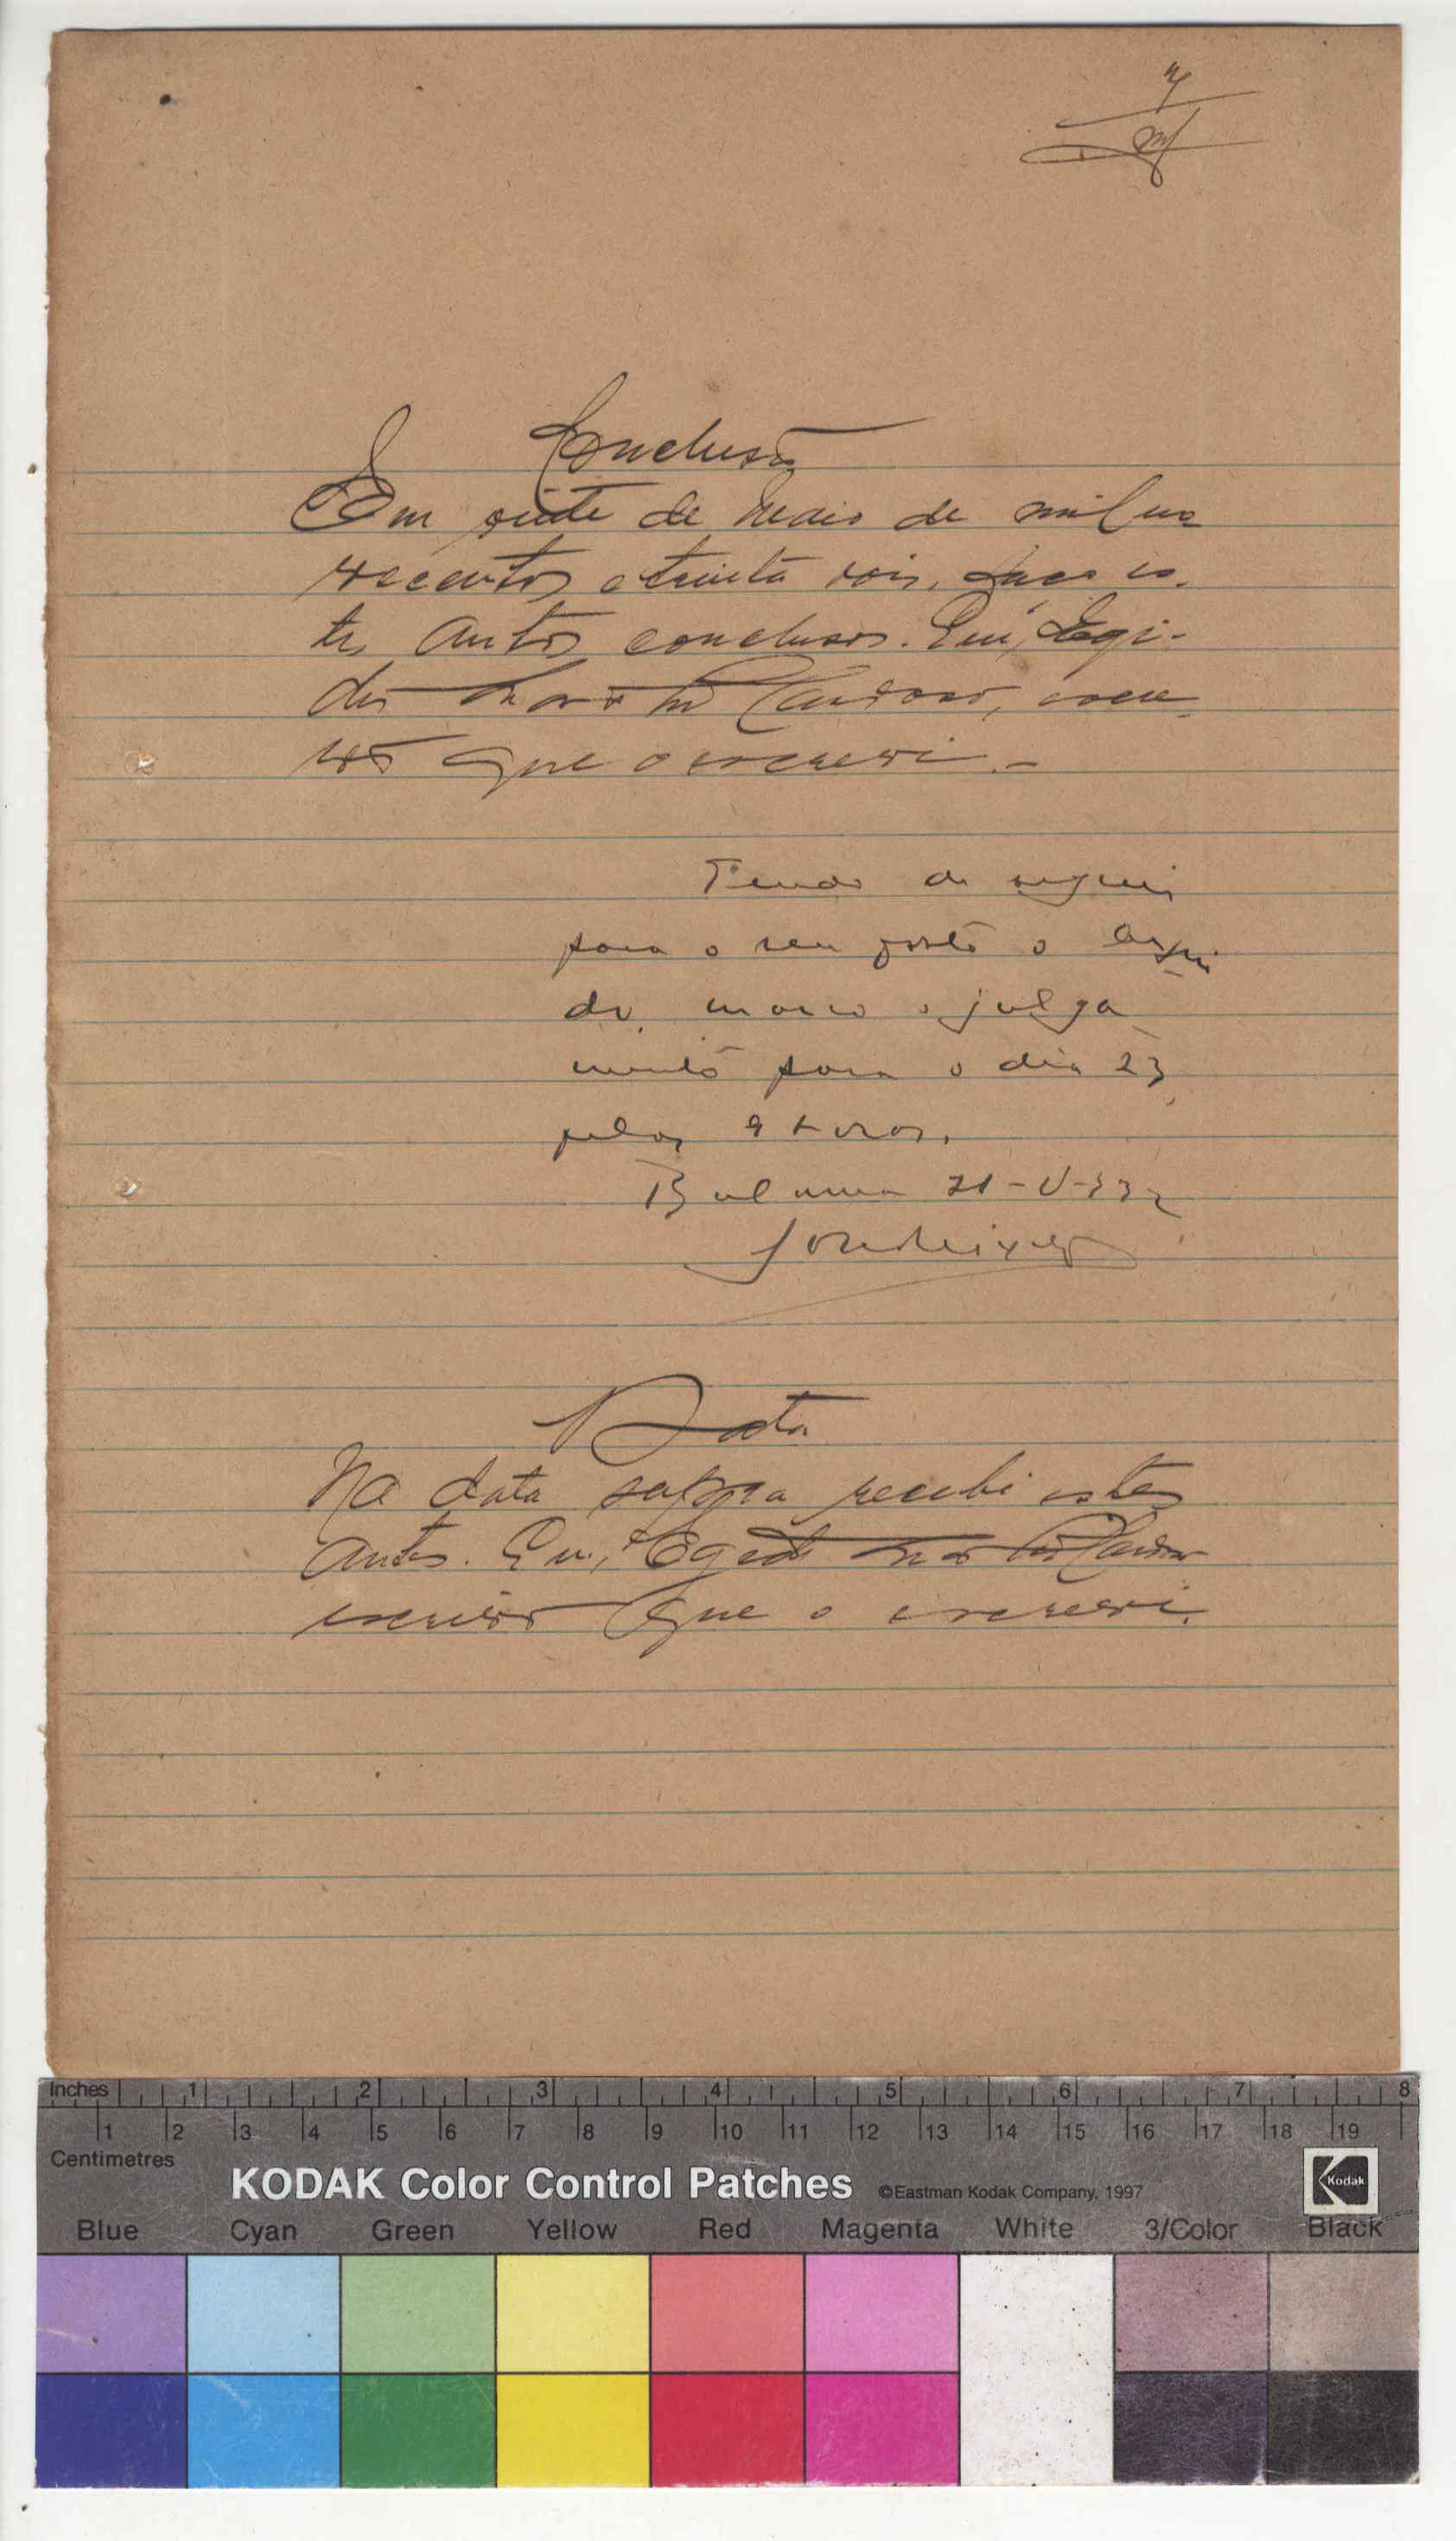 Conclusão
Em sete de Maio de mil no
vecentos e trinta e dois, faço es-
tes autos conclusos. Eu, Egi-
dio Cardoso, escri
vão que o escrevi.-
Tendo de seguir
para o seu posto o argui
do, marco o julga
mento para o dia 23,
pelas 9 horas.
Bolama 21-V-932
Data
Na data supra recebi estes
autos. Eu, Egidio Cardoso
escrivão que o escrevi.
Inches 1 2 3 4 5 6 7 8
1 2 3 4 5 6 7 8 9 10 11 12 13 14 15 16 17 18 19
Centimetres
KODAK Color Control Patches ©Eastman Kodak Company, 1997 Kodak
Blue Cyan Green Yellow Red Magenta White 3/Color Black